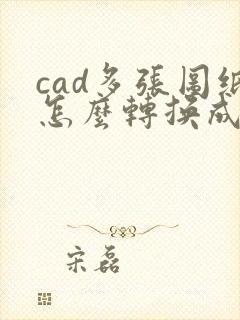 cad多張圖紙
怎麼轉換成
宋磊